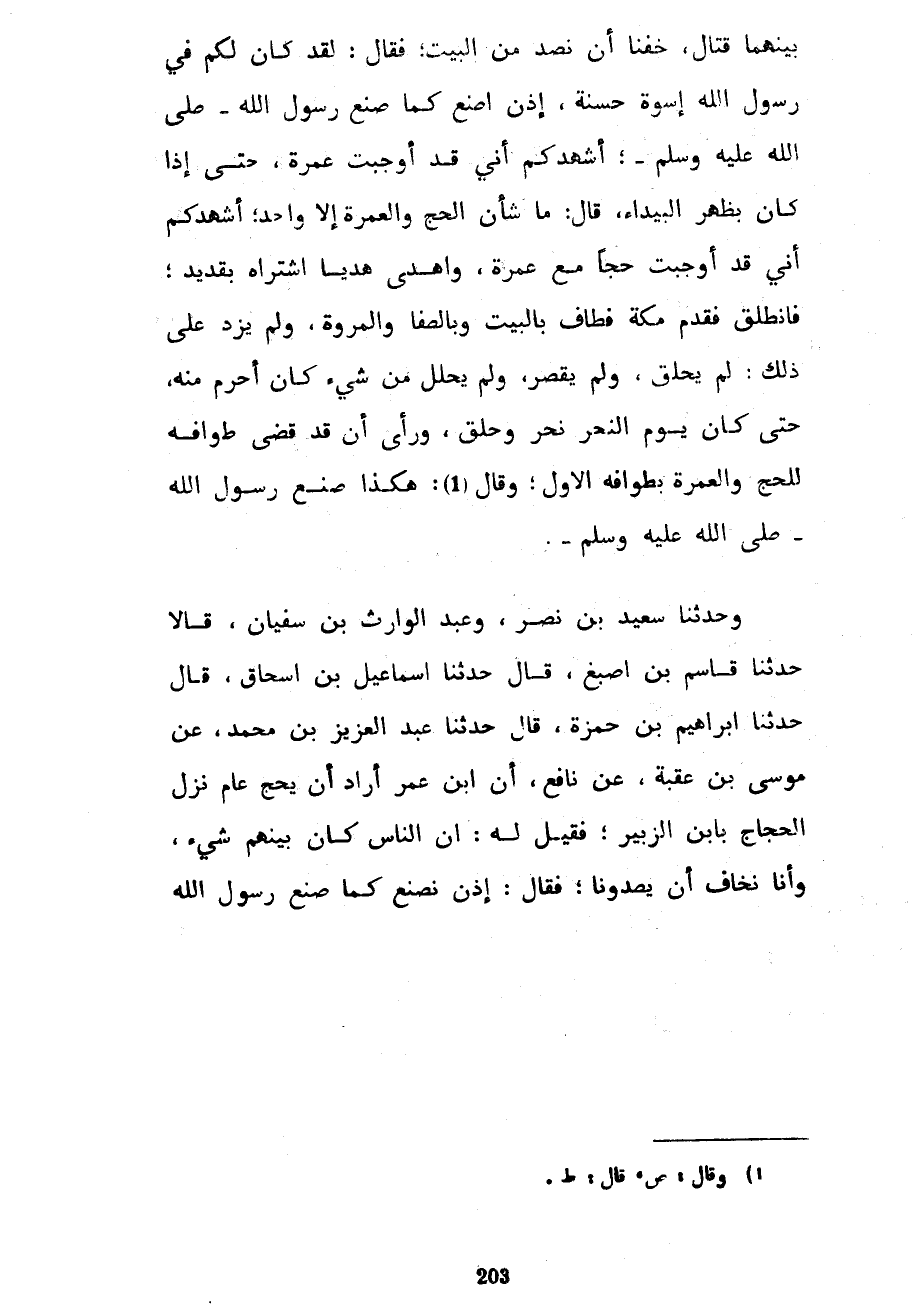 بينهما قتال، خفنا أن نصد من البيت؛ فقال : لقد كان لكم في
رسول الله إسوة حسنة ، إذن اصنع كما صنع رسول الله ـ صلى
الله عليه وسلم ـ ؛ أشهدكم أني قد أوجبت عمرة ، حتى إذا
كان بظهر البيداء، قال: ما شأن الحج والعمرة إلا واحد؛ أشهدكم
أني قد أوجبت حجاً مع عمرة ، واهدى هديا اشتراه بقديد ؛
فانطلق فقدم مكة فطاف بالبيت وبالصفا والمروة ، ولم يزد على
ذلك : لم يحلق ، ولم يقصر، ولم يحلل من شيء كان أحرم منه،
حتى كان يوم النحر نحر وحلق ، ورأى أن قد قضى طوافه
للحج والعمرة بطوافه الاول ؛ وقال (1): هكذا صنع رسول الله
ـ صلى الله عليه وسلم ـ .
وحدثنا سعيد بن نصر ، وعبد الوارث بن سفيان ، قالا
حدثنا قاسم بن اصبغ ، قال حدثنا اسماعيل بن اسحاق ، قال
حدثنا ابراهيم بن حمزة ، قال حدثنا عبد العزيز بن محمد، عن
موسى بن عقبة ، عن نافع، أن ابن عمر أراد أن يحج عام نزل
الحجاج بابن الزبير ؛ فقيل له : ان الناس كان بينهم شيء ،
وأنا نخاف أن يصدونا ؛ فقال : إذن نصنع كما صنع رسول الله
1) وقال : ص، قال : ط .
203